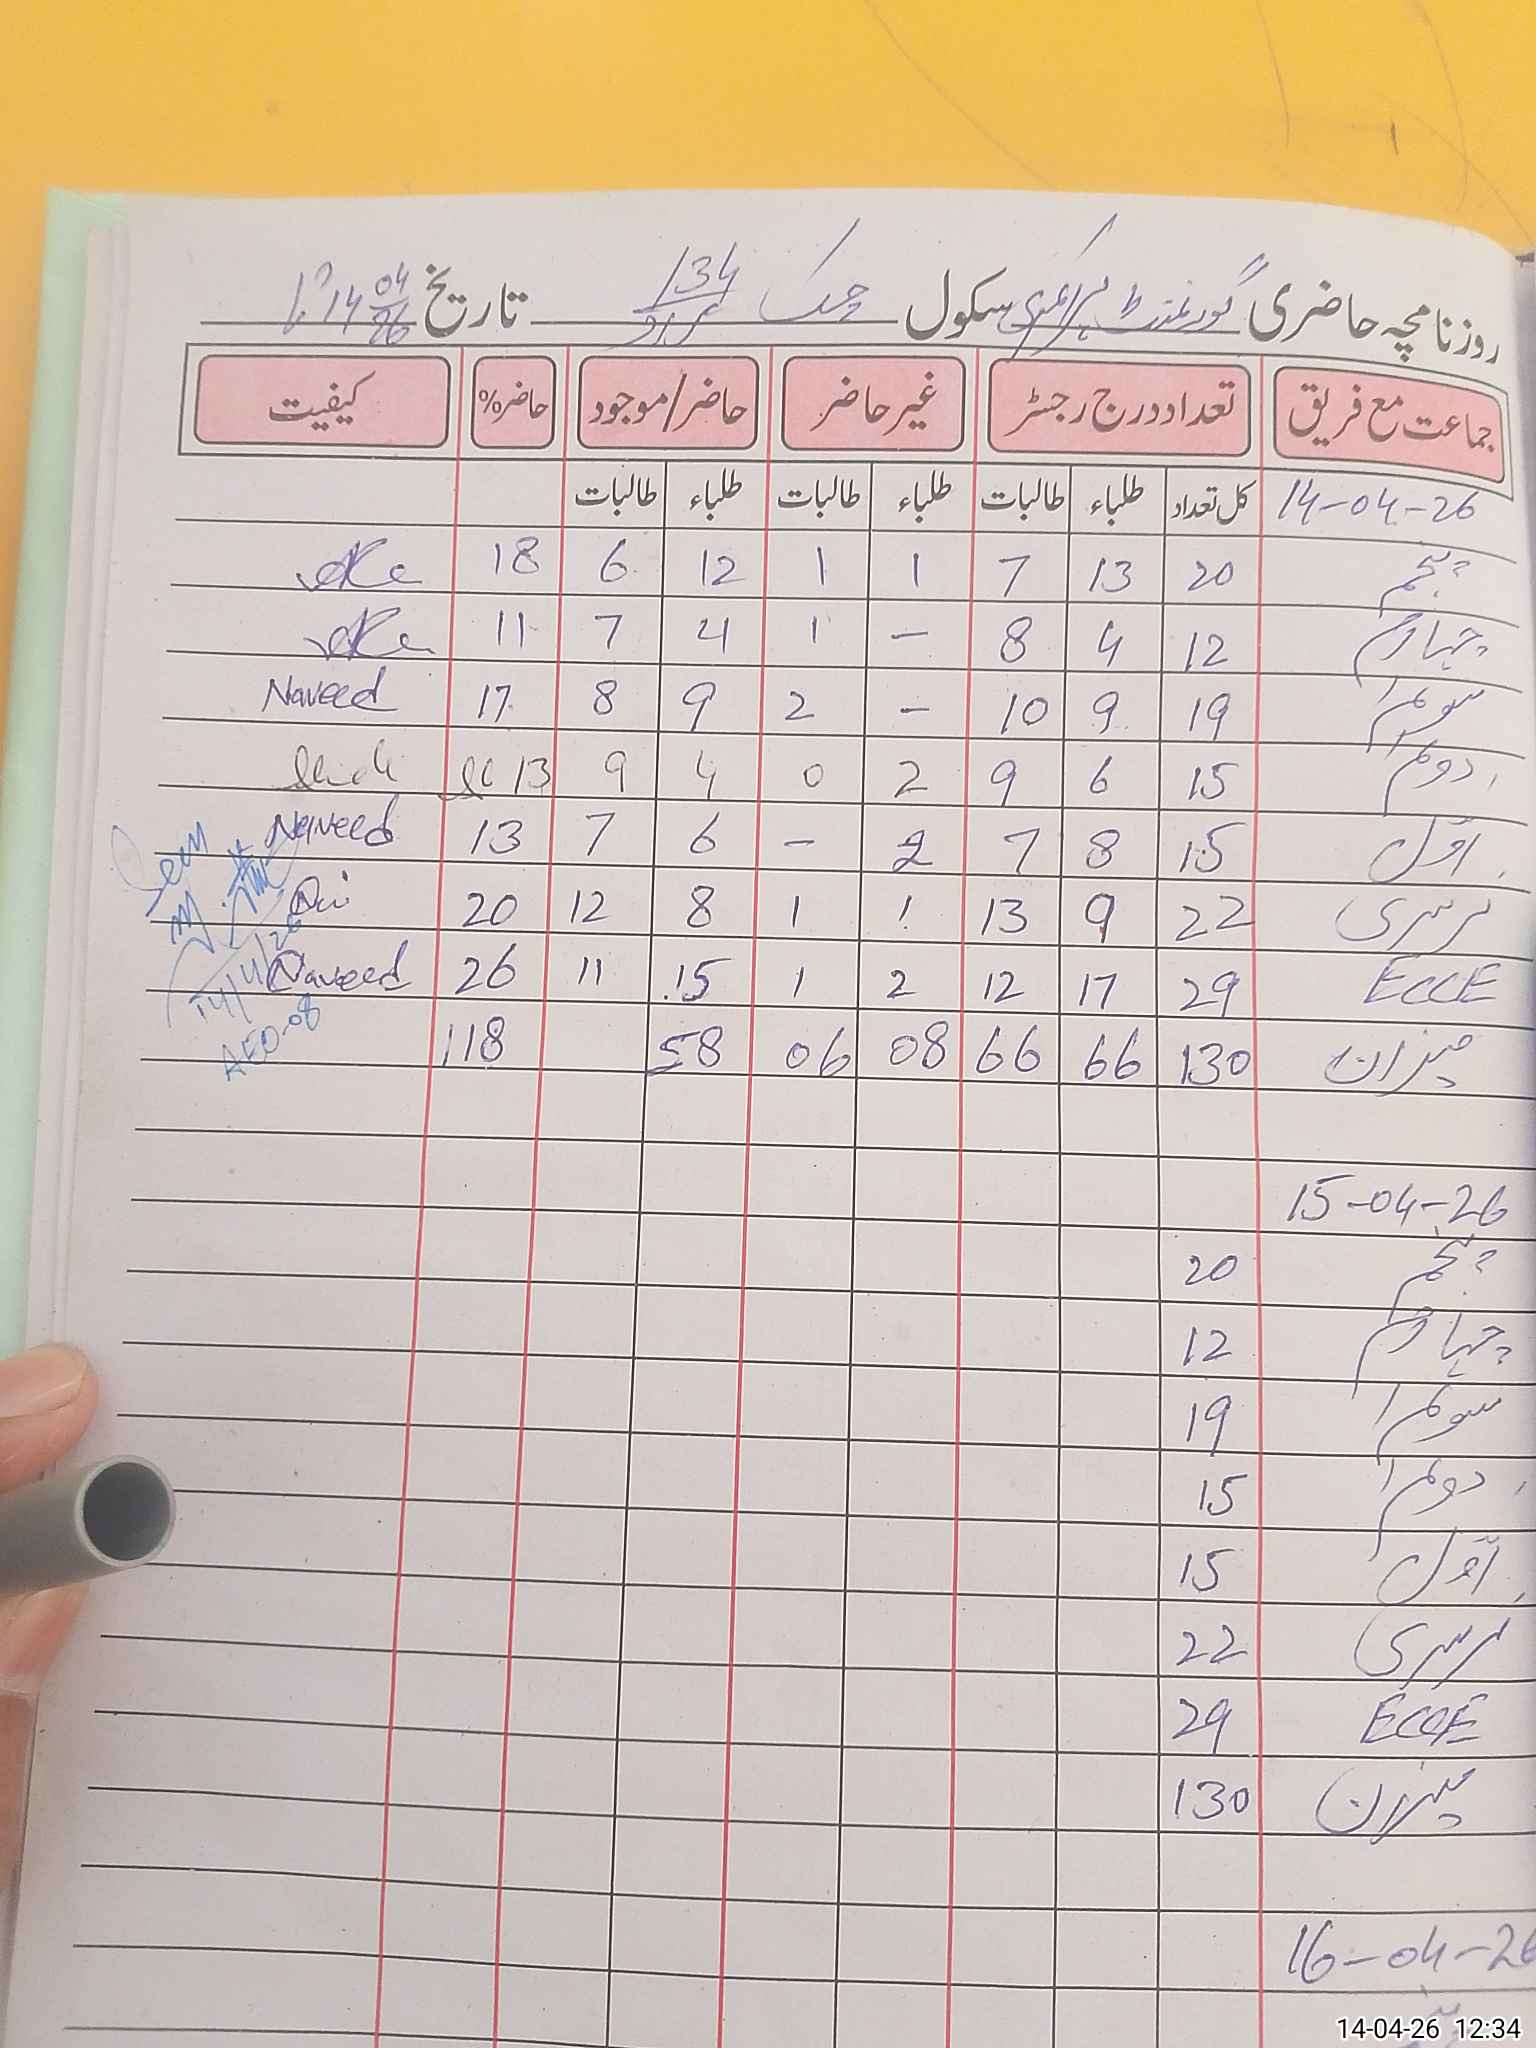 روزنامچہ حاضری گورنمنٹ پرائمری سکول چک 134 تاریخ 14 04 26
جماعت مع فریق تعداد درج رجسٹر غیر حاضر حاضر/موجود حاضر% کیفیت
14-04-26 کل تعداد طلباء طالبات طلباء طالبات طلباء طالبات
پنجم 20 13 7 1 1 12 6 18
چہارم 12 4 8 - 1 4 7 11
سوم 19 9 10 - 2 9 8 17 Naveed
دوم 15 6 9 2 0 4 9 13
اوّل 15 8 7 2 - 6 7 13 Naveed
نرسری 22 9 13 1 1 8 12 20
ECCE 29 17 12 2 1 15 11 26 Naveed
میزان 130 66 66 08 06 58 118
Seen
14/4/26
AEO-08
15-04-26
پنجم 20
چہارم 12
سوم 19
دوم 15
اوّل 15
نرسری 22
ECCE 29
میزان 130
16-04-26
14-04-26 12:34